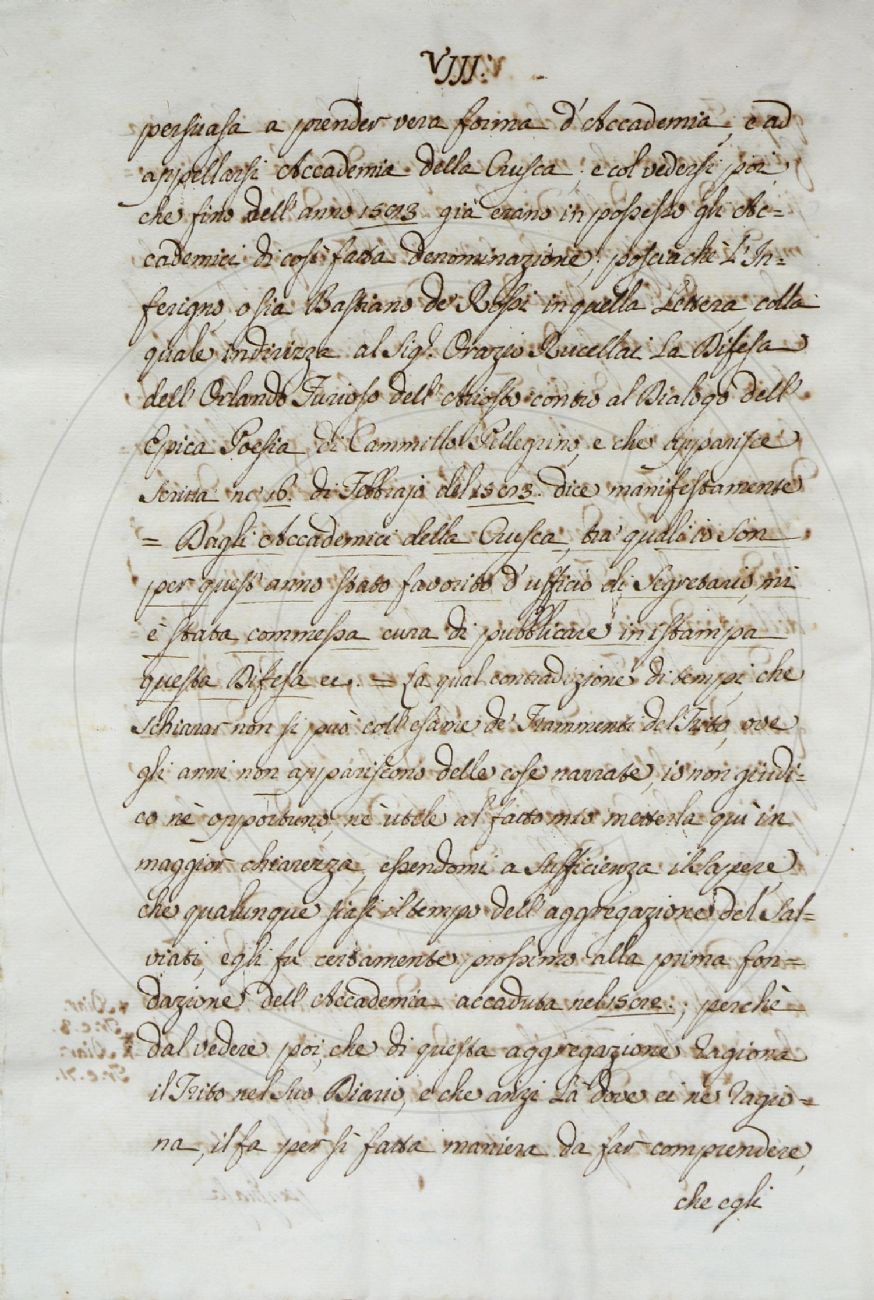 VIII.
persuasa a prender vera forma d'Accademia, e ad
appellarsi Accademia della Crusca: e col vedersi poi,
che fino dell'anno 1583. già erano in possesso gli Ac=
cademici di così fatta denominazione; posciachè L'In=
ferigno, o sia Bastiano de' Rossi in quella Lettera, colla
quale indirizza al Sig.r Orazio Rucellai La Difesa
dell'Orlando Furioso dell'Ariosto contro al Dialogo dell'
Epica Poesia di Cammillo Pellegrino, e che apparisce
scritta ne' 16. di Febbrajo del 1583. dice manifestamente
= Dagli Accademici della Crusca, tra' quali io son
per quest'anno stato favorito d'ufficio di Segretario, mi
è stata commessa cura di pubblicare in istampa
questa Difesa ec. = La qual contradizione di tempi, che
schiarar non si può coll'esame de' Frammenti del Trito, ove
gli anni non appariscono delle cose narrate, io non giudi=
co nè opportuno, nè utile al fatto mio metterla quì in
maggior chiarezza, essendomi a sufficienza il sapere
che qualunque siasi il tempo dell'aggregazione del Sal=
viati, egli fu certamente prossimo alla prima fon=
dazione dell'Accademia accaduta nel 1582.; perchè
dal vedere poi, che di questa aggregazione ragiona
il Trito nel suo Diario, e che anzi Là dove ei ne ragio=
na, il fa per sì fatta maniera da far comprendere,
che egli